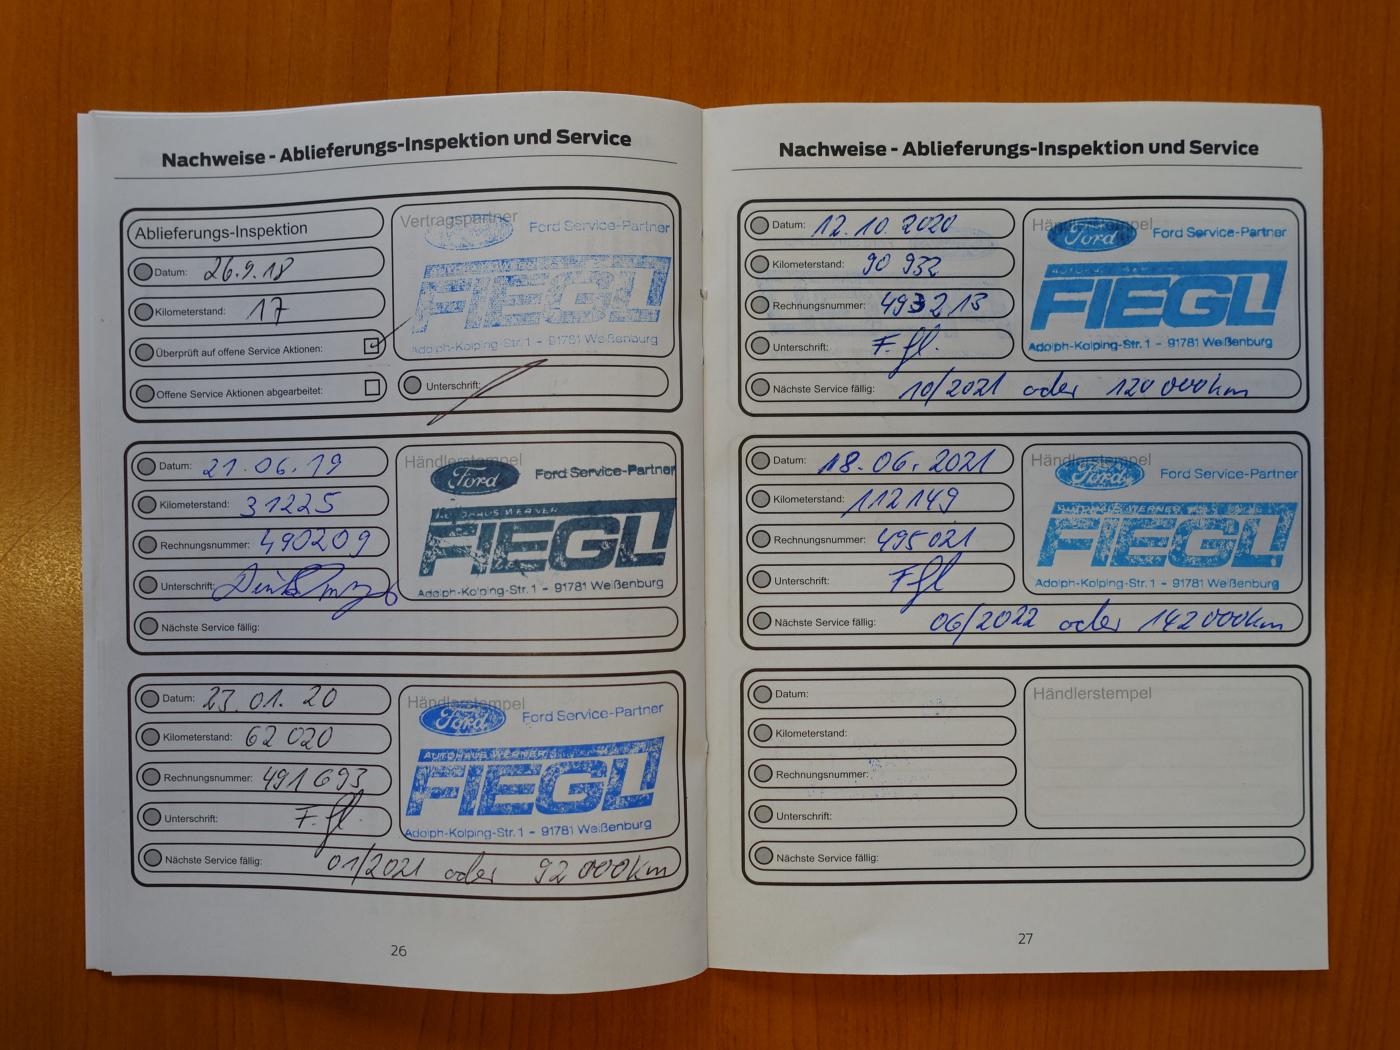 Nachweise - Ablieferungs-Inspektion und Service
Ablieferungs-Inspektion
Datum: 26.9.18
Kilometerstand: 17
Überprüft auf offene Service Aktionen:
Offene Service Aktionen abgearbeitet:
Vertragspartner
Ford Service-Partner
FIEGL
Adolph-Kolping-Str. 1 - 91781 Weißenburg
Unterschrift:
Datum: 21.06.19
Kilometerstand: 31225
Rechnungsnummer: 490209
Unterschrift:
Nächste Service fällig:
Händlerstempel
Ford Ford Service-Partner
AUTOHAUS WERNER
FIEGL
Adolph-Kolping-Str. 1 - 91781 Weißenburg
Datum: 23.01.20
Kilometerstand: 62 020
Rechnungsnummer: 491693
Unterschrift:
Nächste Service fällig: 01/2021 oder 92 000km
Händlerstempel
Ford Ford Service-Partner
AUTOHAUS WERNER
FIEGL
Adolph-Kolping-Str. 1 - 91781 Weißenburg
26
Nachweise - Ablieferungs-Inspektion und Service
Datum: 12.10.2020
Kilometerstand: 90 932
Rechnungsnummer: 493213
Unterschrift:
Nächste Service fällig: 10/2021 oder 120 000km
Händlerstempel
Ford Ford Service-Partner
FIEGL
Adolph-Kolping-Str. 1 - 91781 Weißenburg
Datum: 18.06.2021
Kilometerstand: 112149
Rechnungsnummer: 495021
Unterschrift:
Nächste Service fällig: 06/2022 oder 142 000km
Händlerstempel
Ford Ford Service-Partner
AUTOHAUS WERNER
FIEGL
Adolph-Kolping-Str. 1 - 91781 Weißenburg
Datum:
Kilometerstand:
Rechnungsnummer:
Unterschrift:
Nächste Service fällig:
Händlerstempel
27